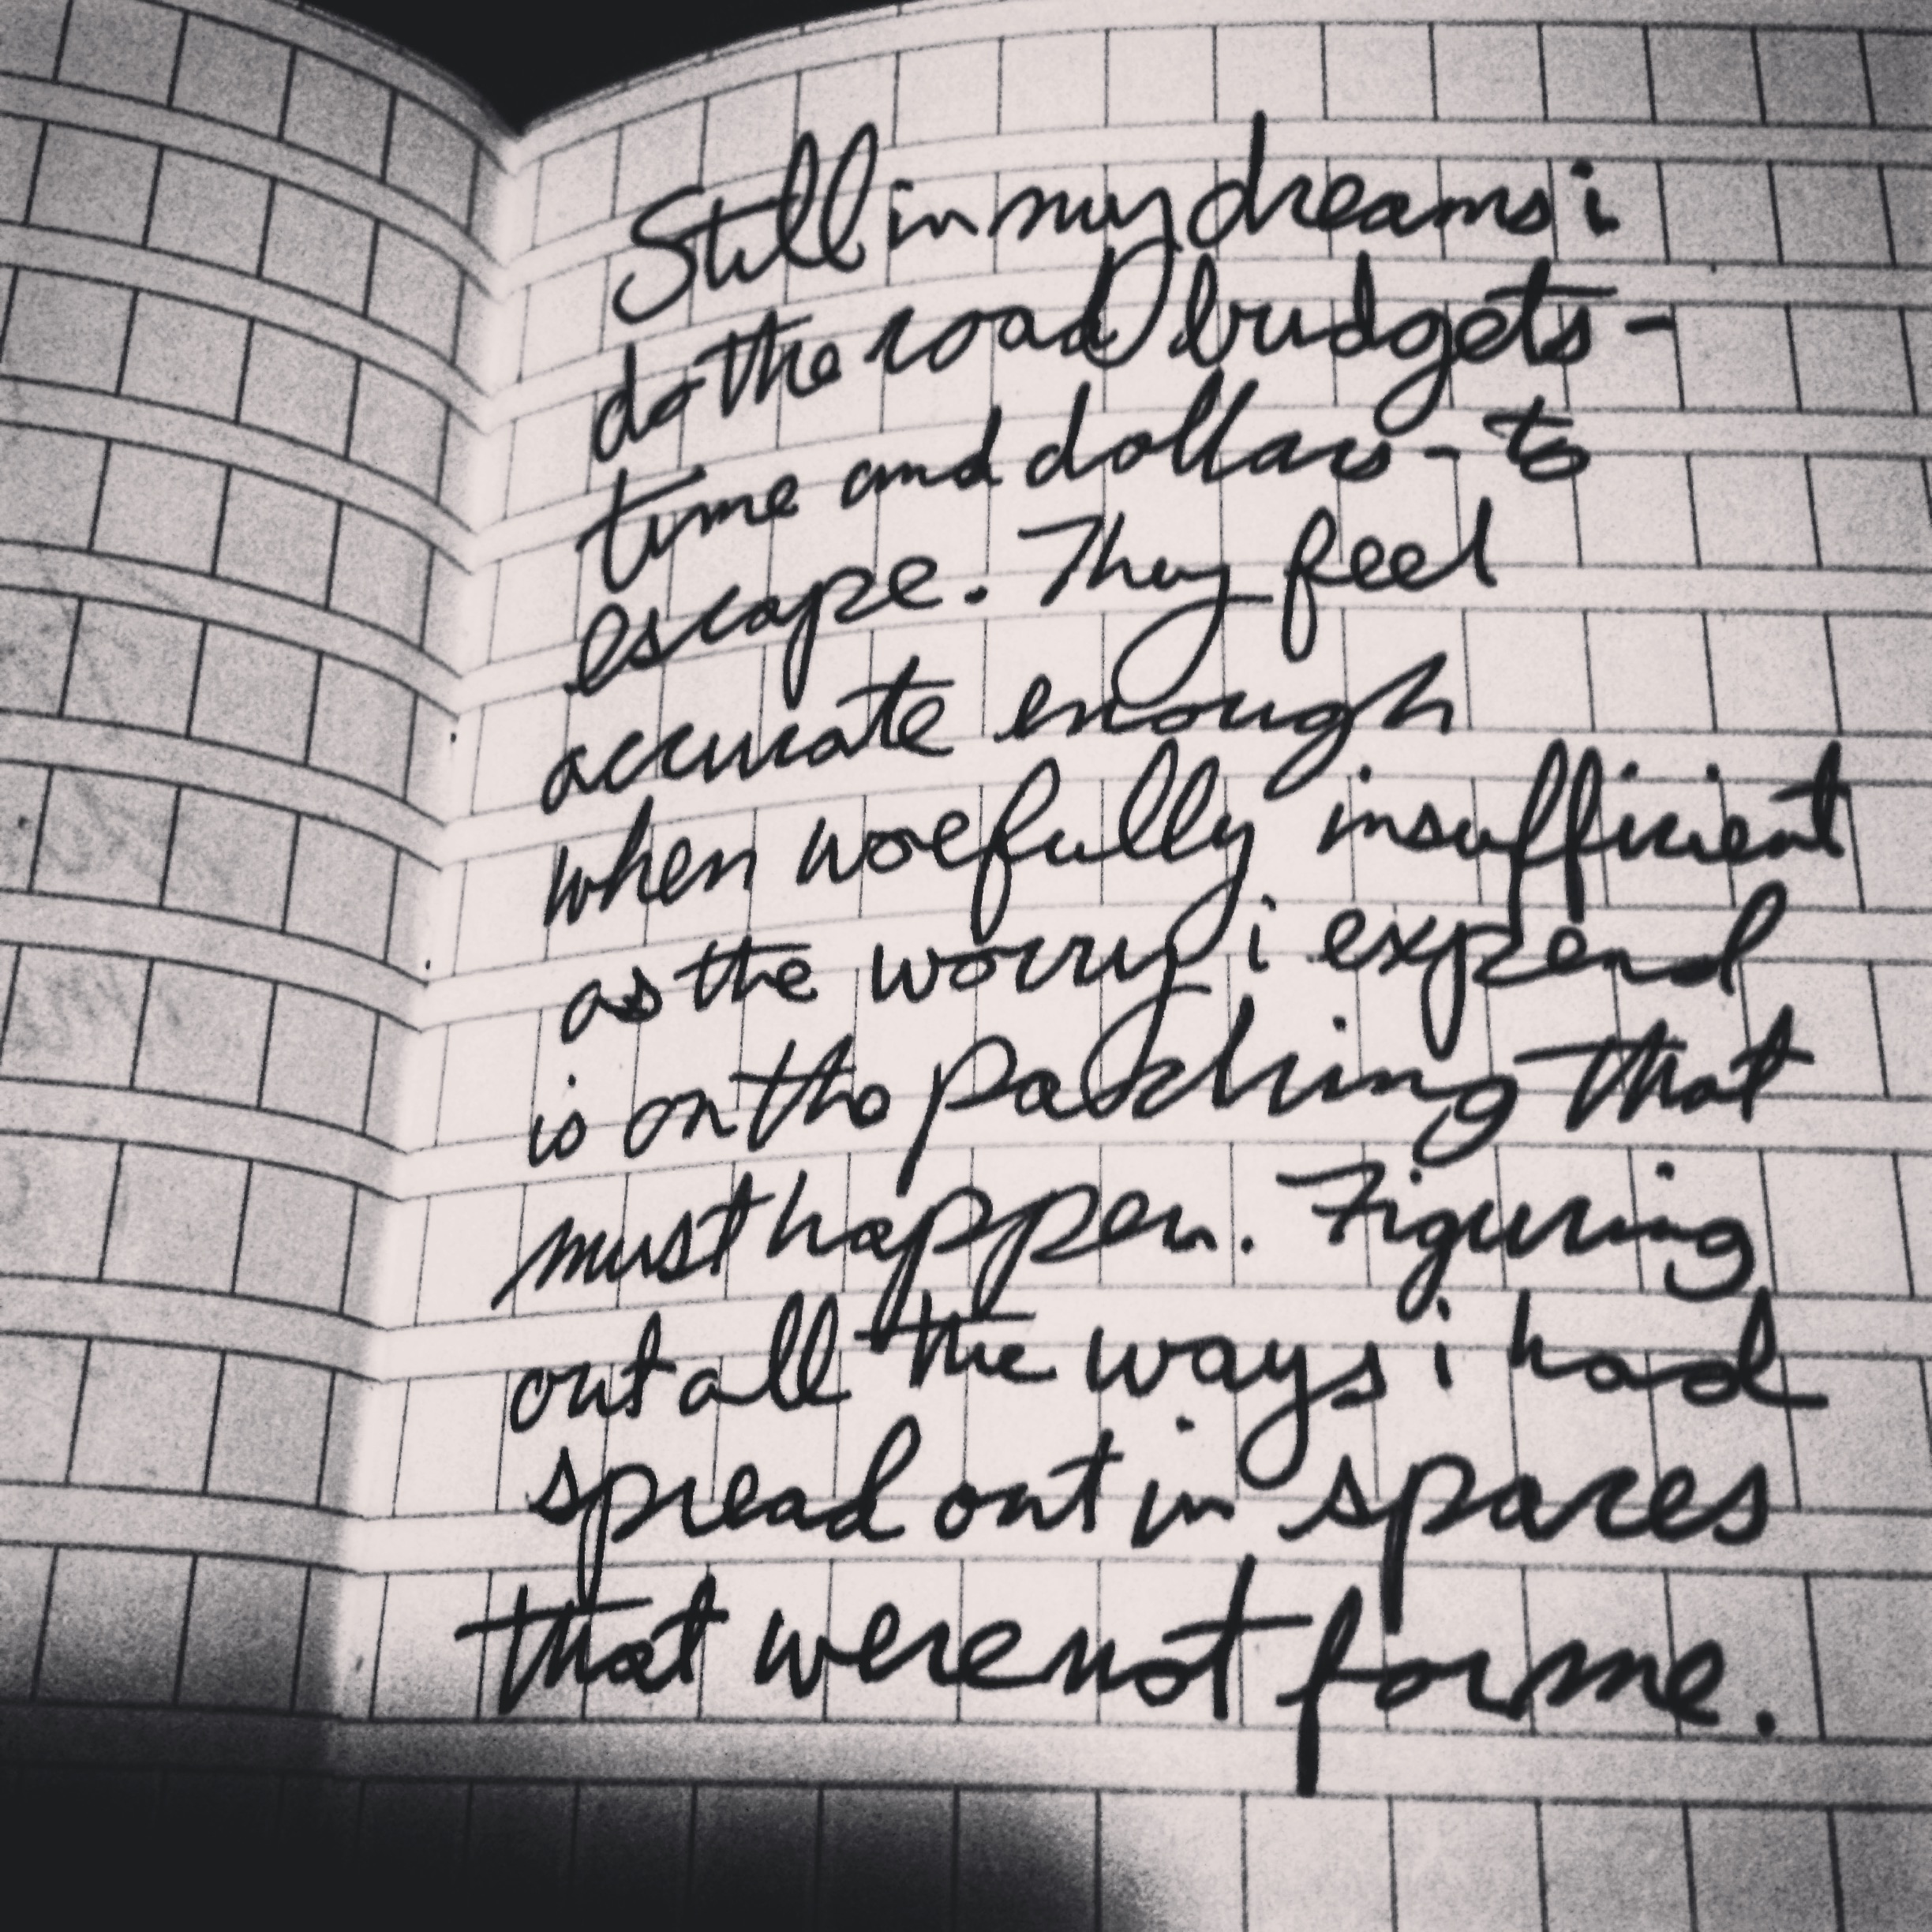 Still in my dreams i
do the road budgets -
time and dollars - to
escape. They feel
accurate enough
when woefully insufficient
as the worry i expend
is on the patching that
must happen. Figuring
out all the ways i had
spread out in spaces
that were not for me.